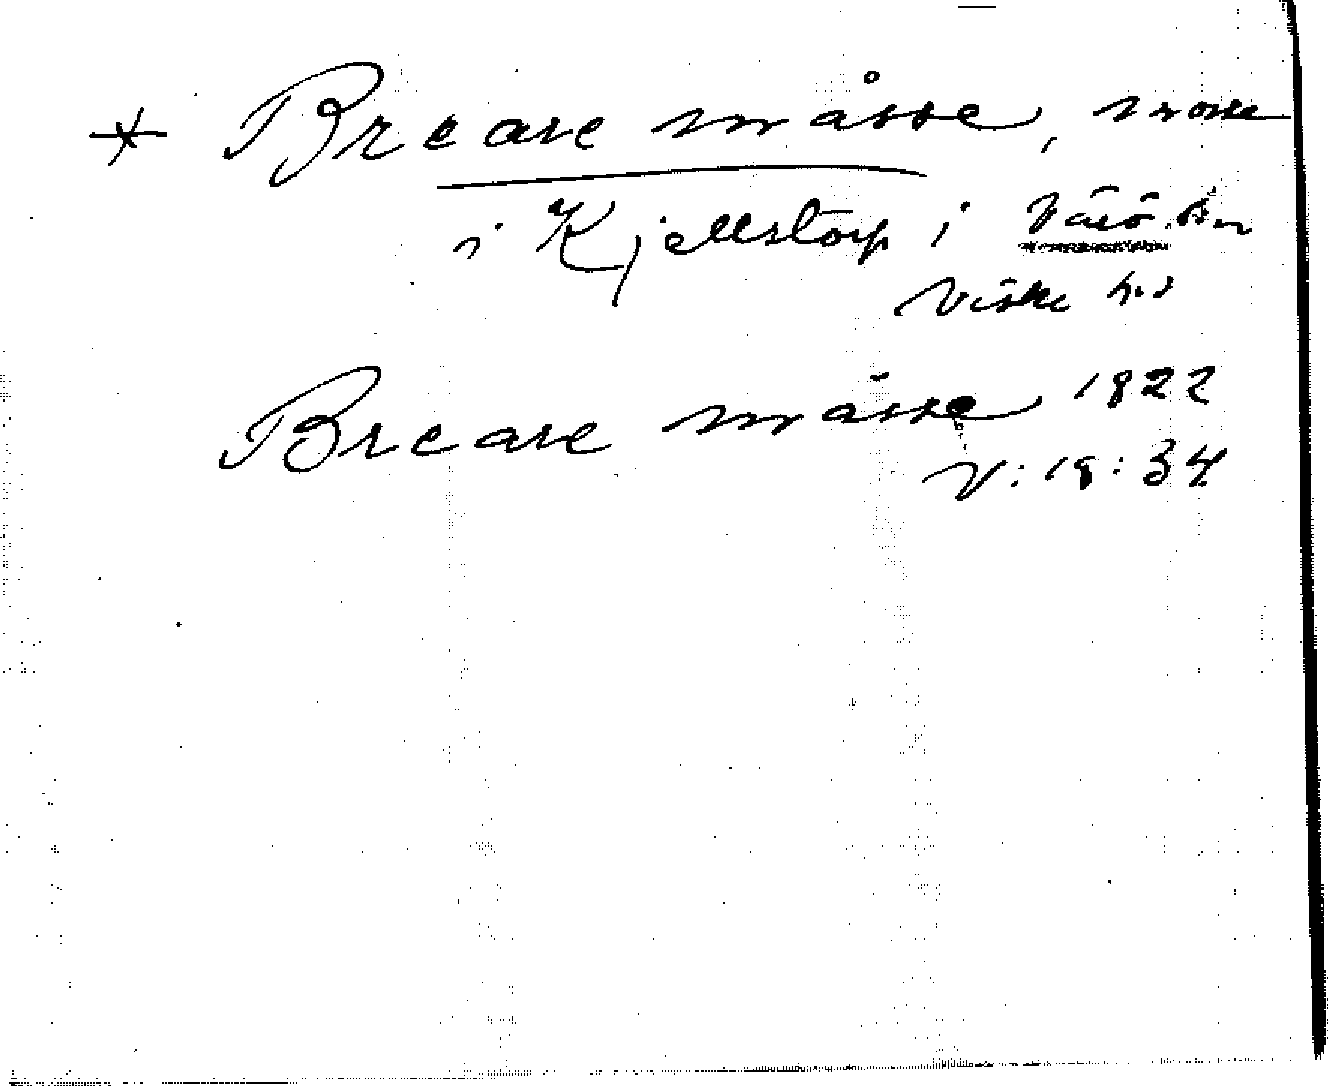 * Breare måsse, mosse
i Kjellstorp i Värö sn
Viske hd
Breare måsse 1822
V:18:34